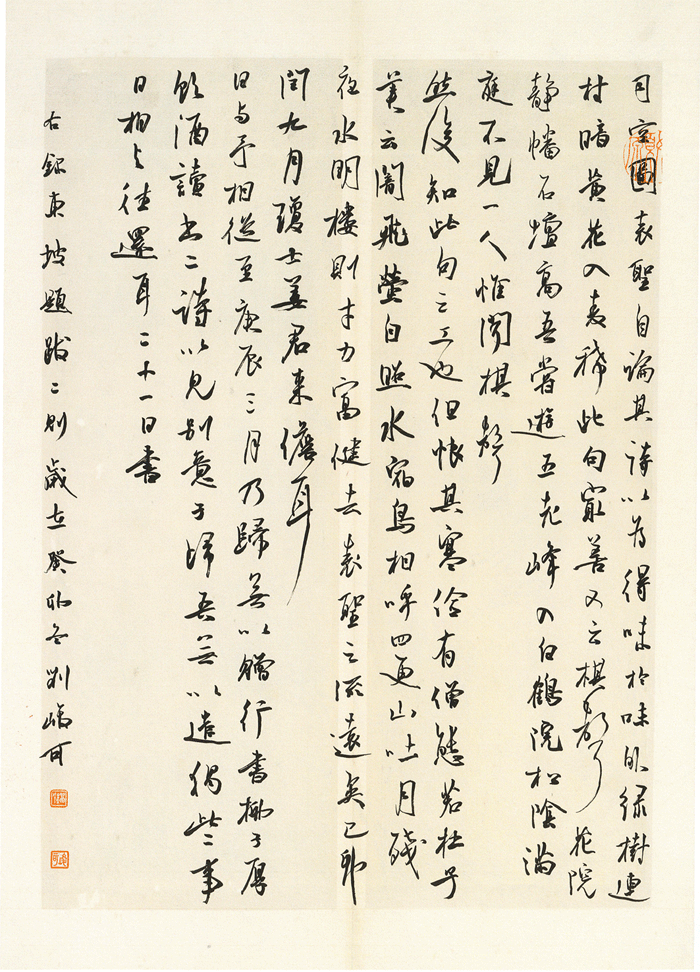 司空圖表聖自論其詩以為得味於味外綠樹連
村暗黃花入麥稀此句最善又云棋聲花院
靜幡石壇高吾嘗遊五老峰入白鶴院松陰滿
庭不見一人惟聞棋聲
然後知此句之工也但恨其寒儉有僧態若杜子
美云闇飛螢自照水宿鳥相呼四更山吐月殘
夜水明樓則才力富健去表聖之流遠矣己卯
閏九月瓊士姜君來儋耳
日與予相從至庚辰三月乃歸無以贈行書柳子厚
飲酒讀書二詩以見別意子歸吾無以遣獨此二事
日相與往還耳二十一日書
右錄東坡題跋二則歲在癸卯冬劉